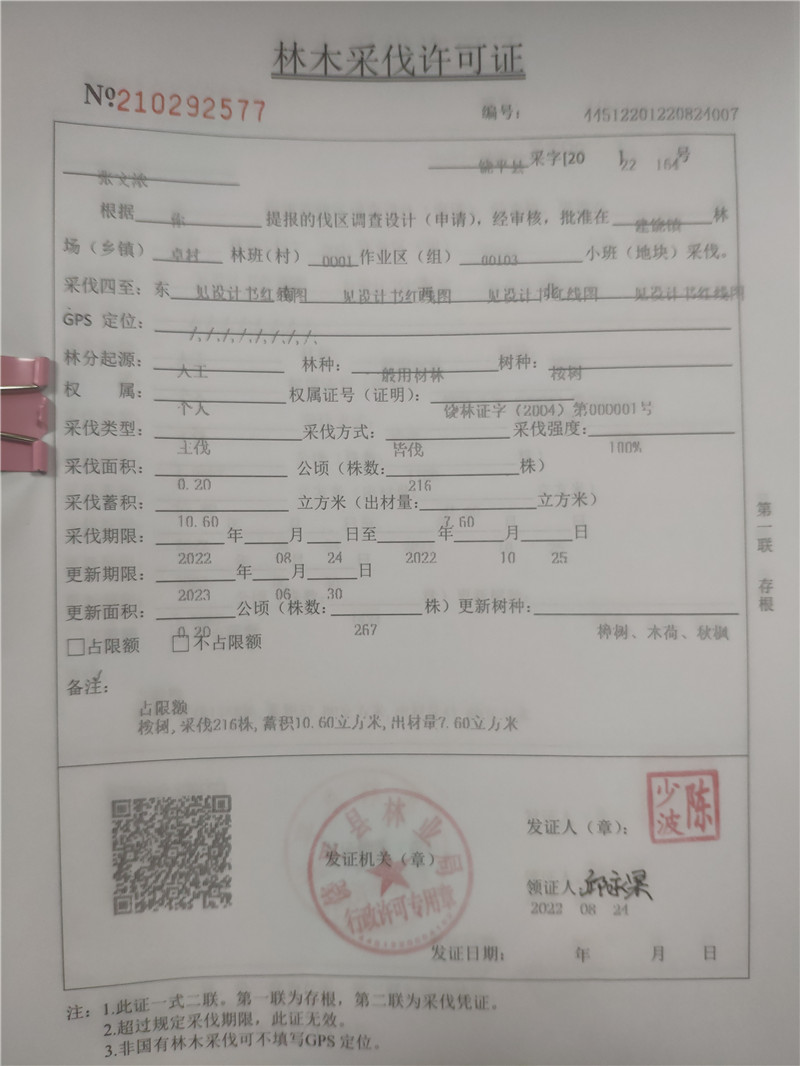 林木采伐许可证
№210292577
编号： 445122201220824007
饶平县 采字[20 ]22 164号
张文浓
根据 你 提报的伐区调查设计（申请），经审核，批准在 建饶镇 林
场（乡镇） 卓村 林班（村） 0001 作业区（组） 00103 小班（地块）采伐。
采伐四至：东 见设计书红线图 南 见设计书红线图 西 见设计书红线图 北 见设计书红线图
GPS 定位： /./././././././.
林分起源： 人工 林种： 一般用材林 树种： 桉树
权 属： 个人 权属证号（证明）： 饶林证字（2004）第000001号
采伐类型： 主伐 采伐方式： 皆伐 采伐强度： 100%
采伐面积： 0.20 公顷（株数： 216 株）
采伐蓄积： 10.60 立方米（出材量： 7.60 立方米）
采伐期限： 2022 年 08 月 24 日至 2022 年 10 月 25 日
更新期限： 2023 年 06 月 30 日
更新面积： 0.20 公顷（株数： 267 株）更新树种： 樟树、木荷、秋枫
□占限额 □不占限额
备注：
占限额
桉树,采伐216株,蓄积10.60立方米,出材量7.60立方米
第一联 存根
饶平县林业局
行政许可专用章
发证机关（章）
发证人（章）：
陈少波
领证人
2022 08 24
发证日期： 年 月 日
注：1.此证一式二联。第一联为存根，第二联为采伐凭证。
2.超过规定采伐期限，此证无效。
3.非国有林木采伐可不填写GPS 定位。